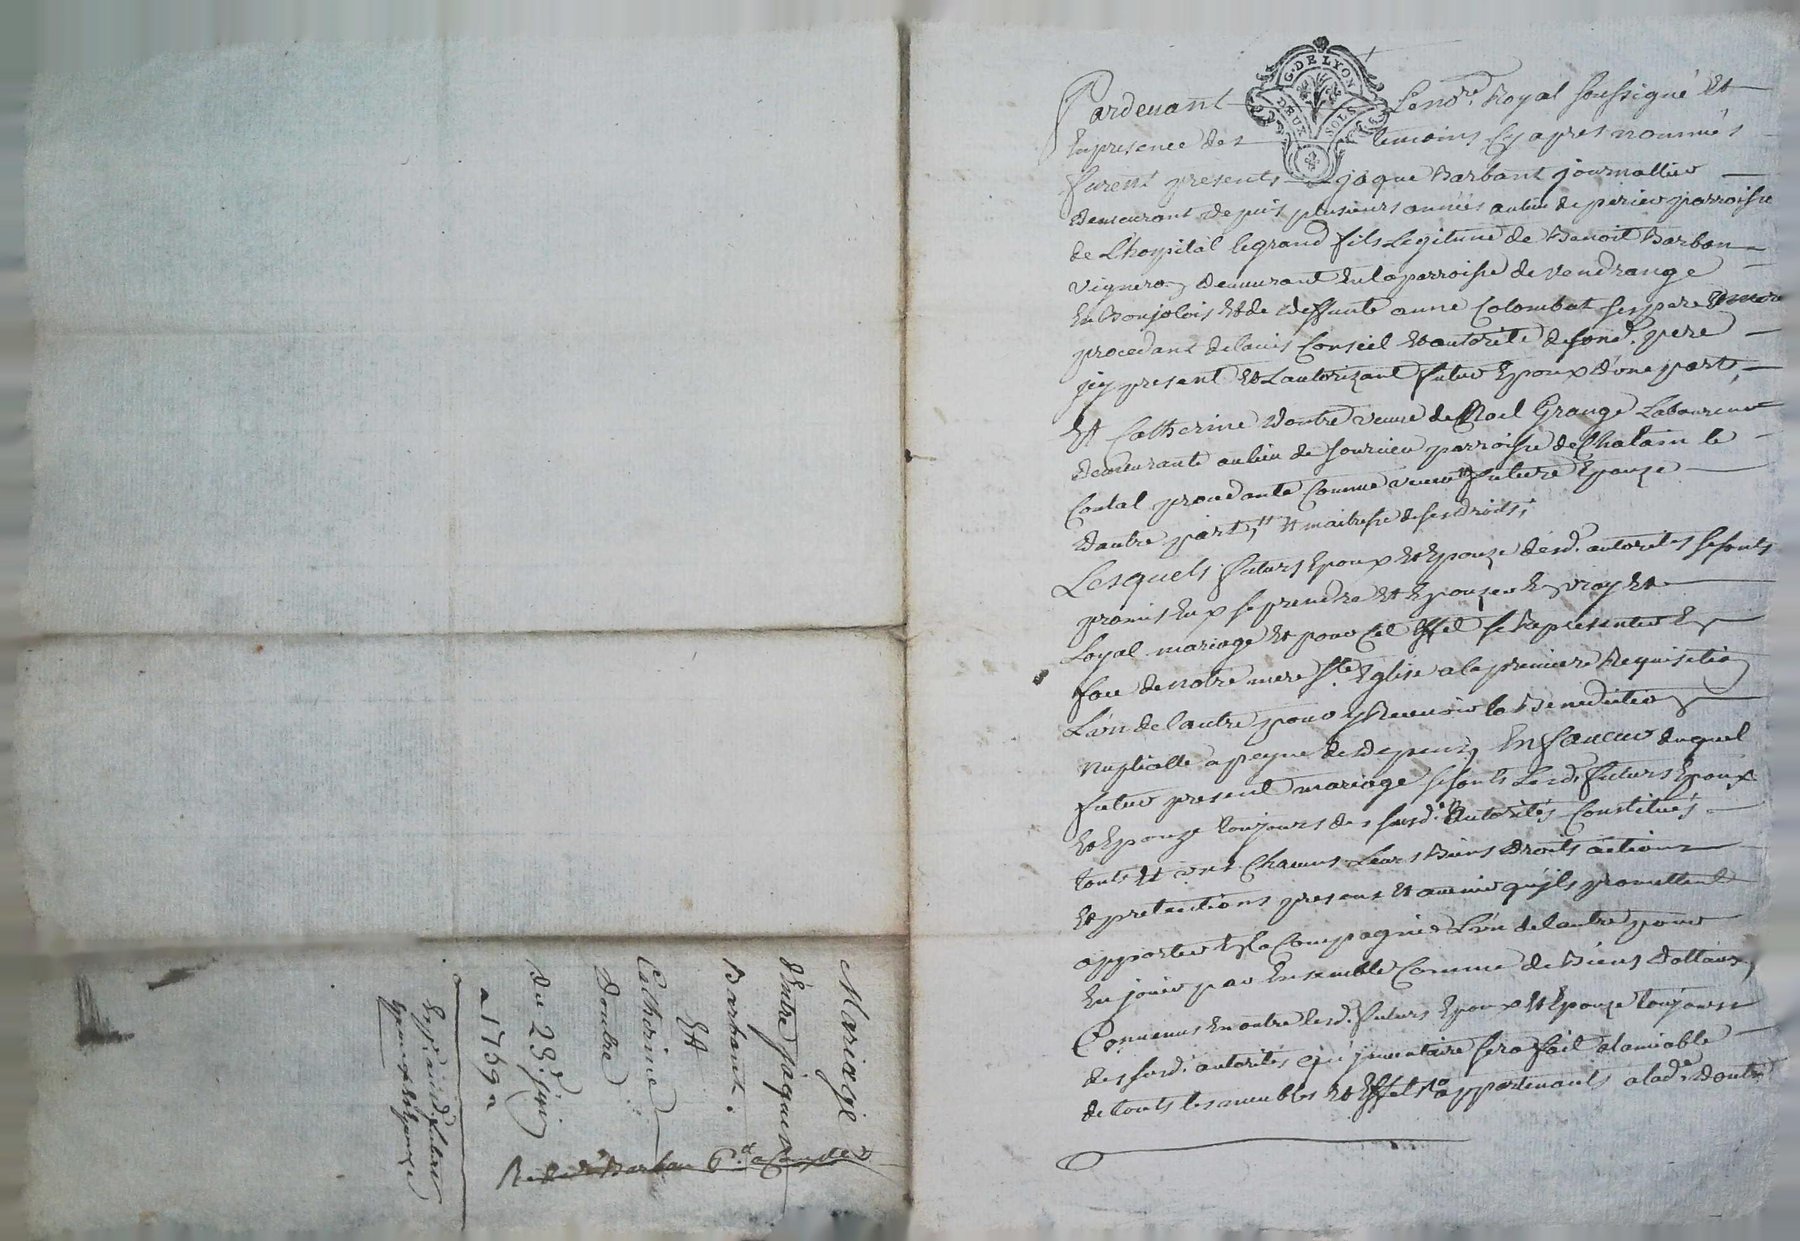 G. DE LYON
DEUX SOLS
Pardevant Le no.re Royal soussigné Et
En presence des temoins Cy apres nommés
furent presents jaque Barbant journallier
demeurant depuis plusieurs années au lieu de perieu parroisse
de L'hopital le grand fils Legitime de Benoit Barban
vigneron demeurant En la parroisse de vendrange
En Baujolois Et de deffunte anne Colombat ses pere Et mere
procedant de lavis Conseil Et autorité de sond. pere
jcy present Et Lautorizant futur Epoux d'une part,
Et Catherine doutre veuve de Noel Grange Laboureur
demeurante au lieu de fournieu parroisse de Chatain le
Contal procedante Comme veuve future Epouze
dautre part, Et maitresse de ses droits;
Lesquels futurs Epoux Et Epouze desd. autorites se sonts
promis Eux se prendre Et Epouzer En vray Et
Loyal mariage Et pour Cet Effet se Representer En
face de notre mere S.te Eglise a la premiere Requisition
L'un de lautre pour y Recevoir la Benediction
Nuptialle a peyne de depens, En faveur duquel
futur present mariage se sonts Lesd. futurs Epoux
Et Epouze toujours des susd. Autorités Constitués
touts Et uns Chacuns Leurs Biens droits actions
Et pretentions presens Et avenir qu'ils promettent
apporter En la Compagnie L'un de lautre pour
En jouir par Ensemble Comme de Biens dottaux,
Convenus En outre lesd. futurs Epoux Et Epouze toujours
des susd. autorités qu'jnventaire sera fait a lamiable
de touts les meubles Et Effets appartenants a lad.e doutre
Mariage
d'entre jaque
Barbant.
Et
Catherine
Doutre
du 28.d juin
a 1759
Exp.
future
Epouze